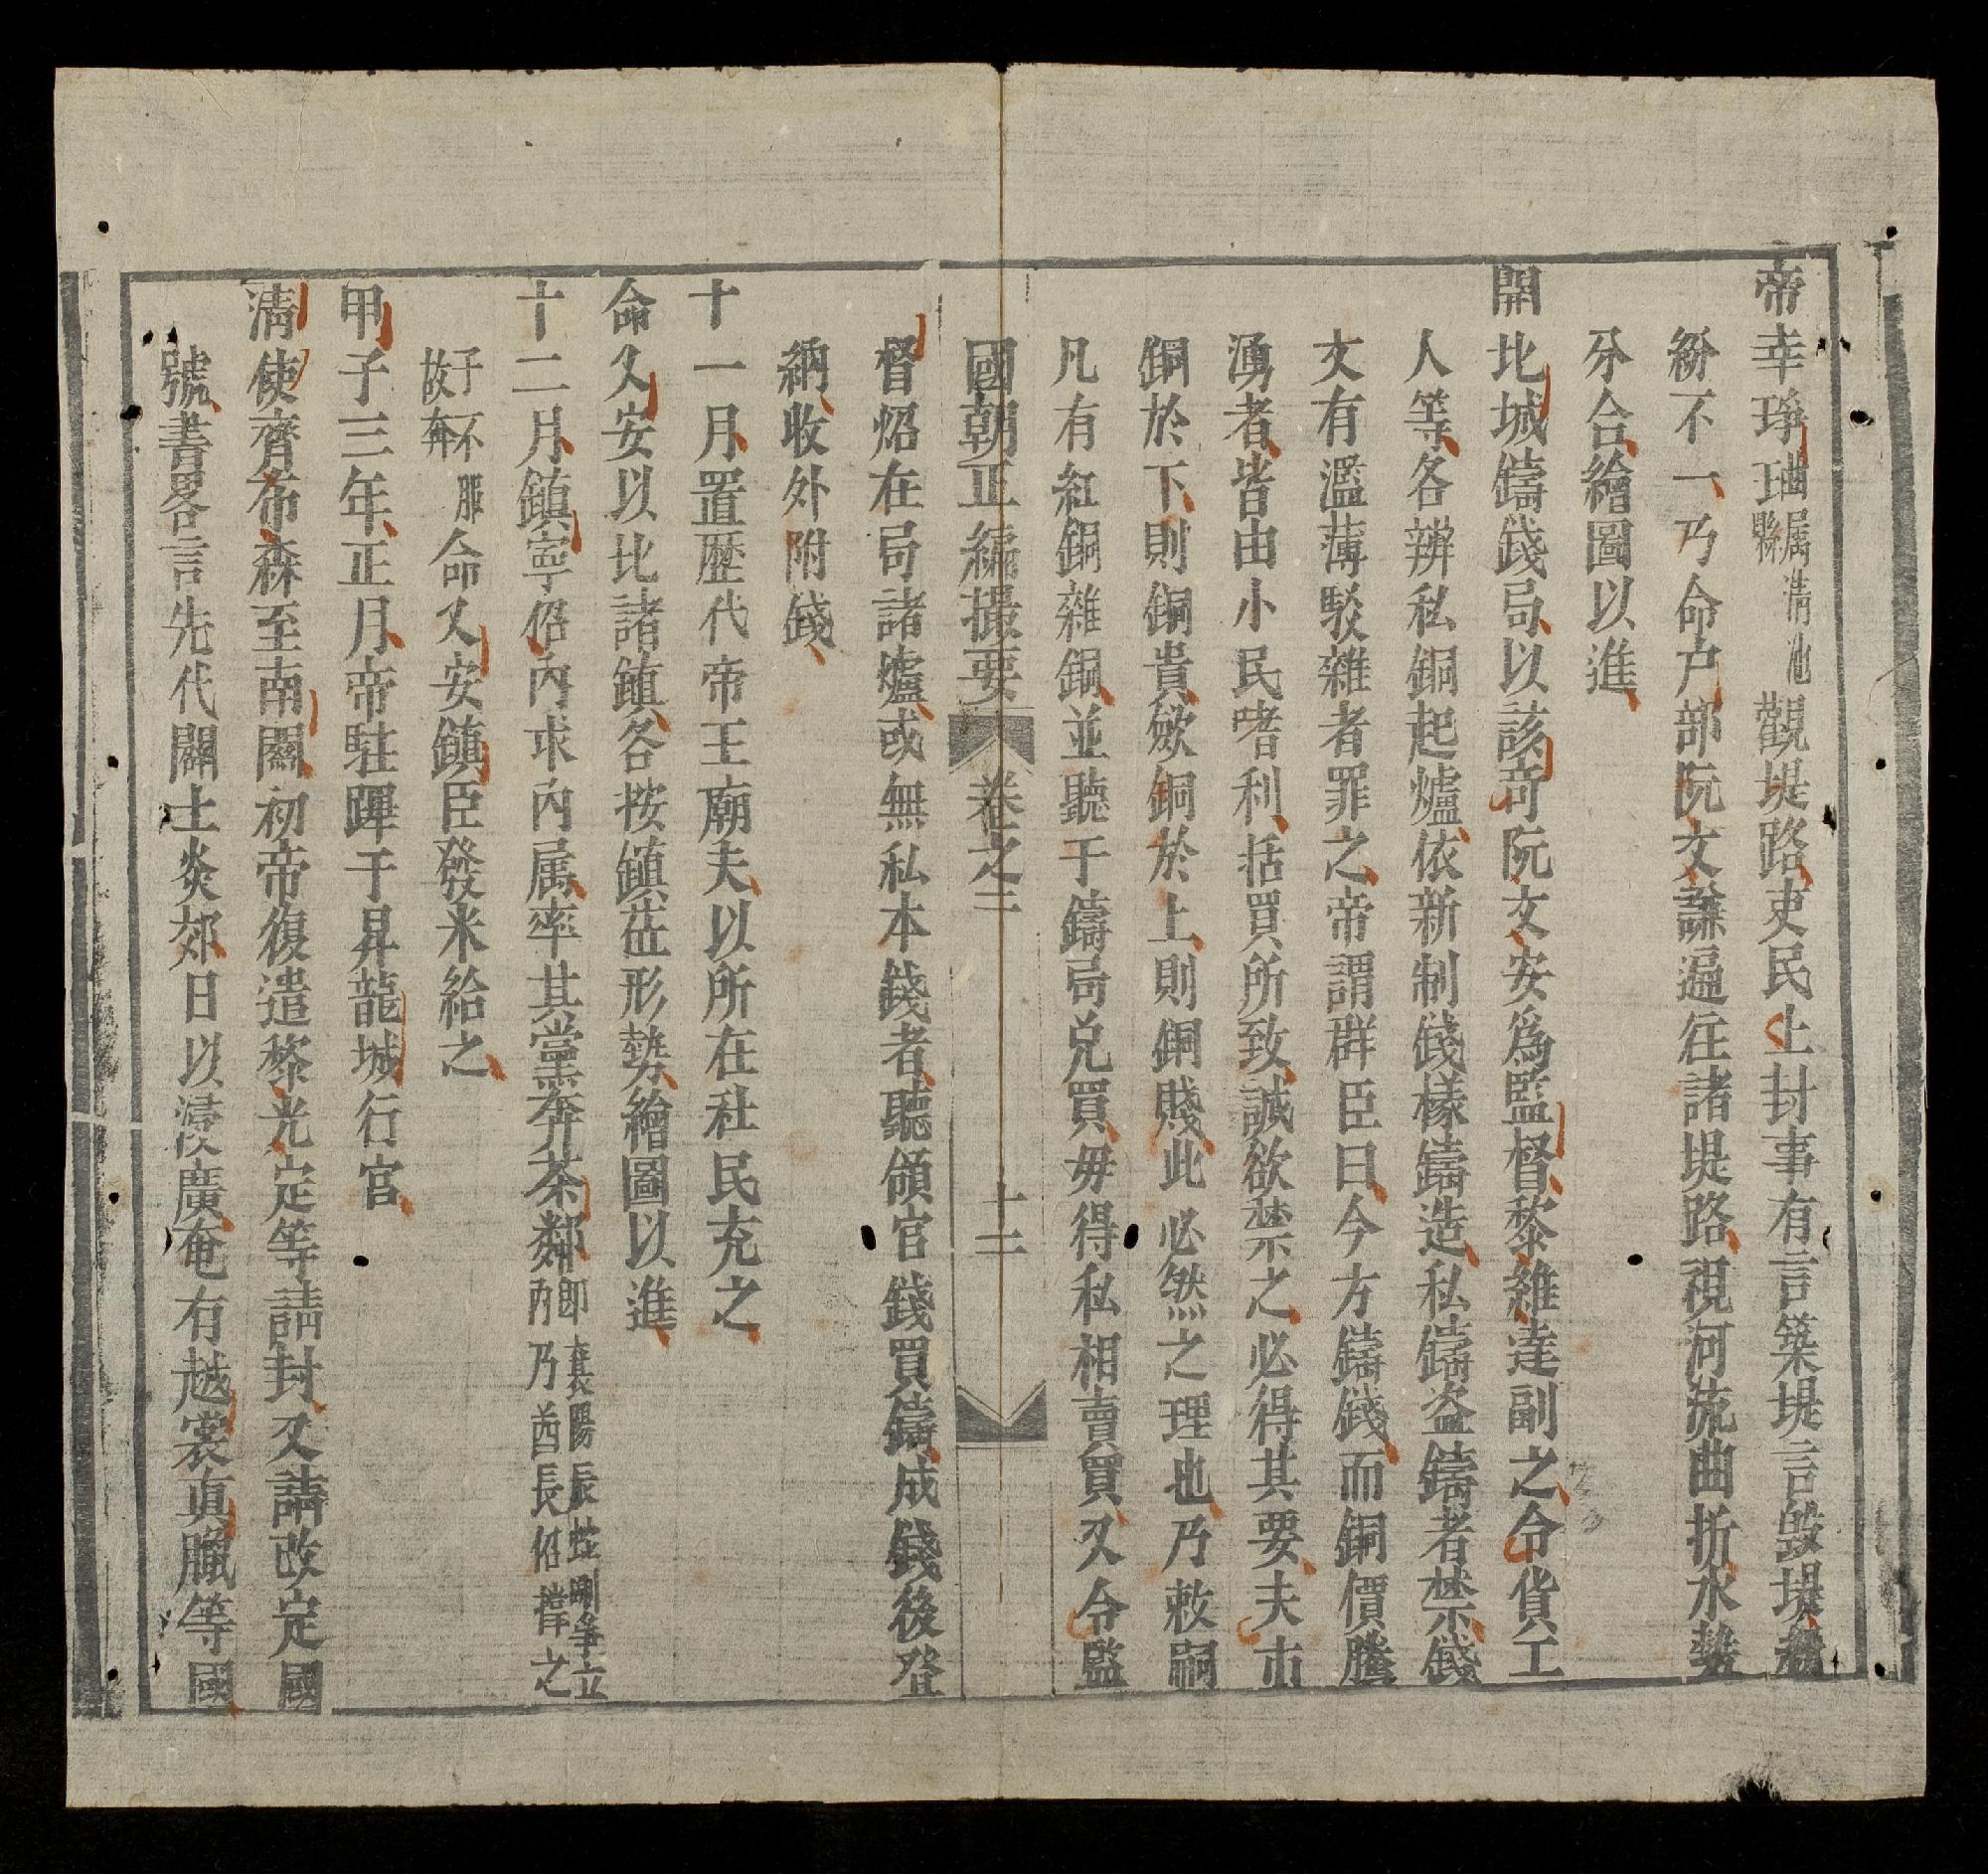 帝幸琤𤤰属清池縣觀堤路吏民上封事有言築堤言毀堤報
紛不一乃命户部阮文謙遍往諸堤路視河流曲折水勢
分合繪圖以進
開北城鑄錢局以該奇阮文安爲監督黎維達副之令貨工
人等各辨私銅起爐依新制錢樣鑄造私鑄盗鑄者禁錢
文有濫薄駁雜者罪之帝謂群臣曰今方鑄錢而銅價騰
湧者皆由小民嗜利括買所致誠欲禁之必得其要夫市
銅於下則銅貴斂銅於上則銅賤此必然之理也乃敕嗣
凡有紅銅雜銅並聽于鑄局兑買毋得私相賣買又令監
國朝正編撮要 卷之三 十二
督炤在局諸爐或無私本錢者聽領官錢買鑄成錢後登
納收外附錢
十一月置歷代帝王廟夫以所在社民充之
命乂安以北諸鎮各按鎮莅形勢繪圖以進
十二月鎮寧佋內求內属率其黨奔茶鄰即襄陽辰蛙唎爭立内乃酋長佋撑之
子不服故奔命乂安鎮臣發米給之
甲子三年正月帝駐蹕于昇龍城行宫
清使齊布森至南關初帝復遣黎光定等請封又請改定國
號書畧言先代闢土炎郊日以浸廣奄有越裳真臘等國